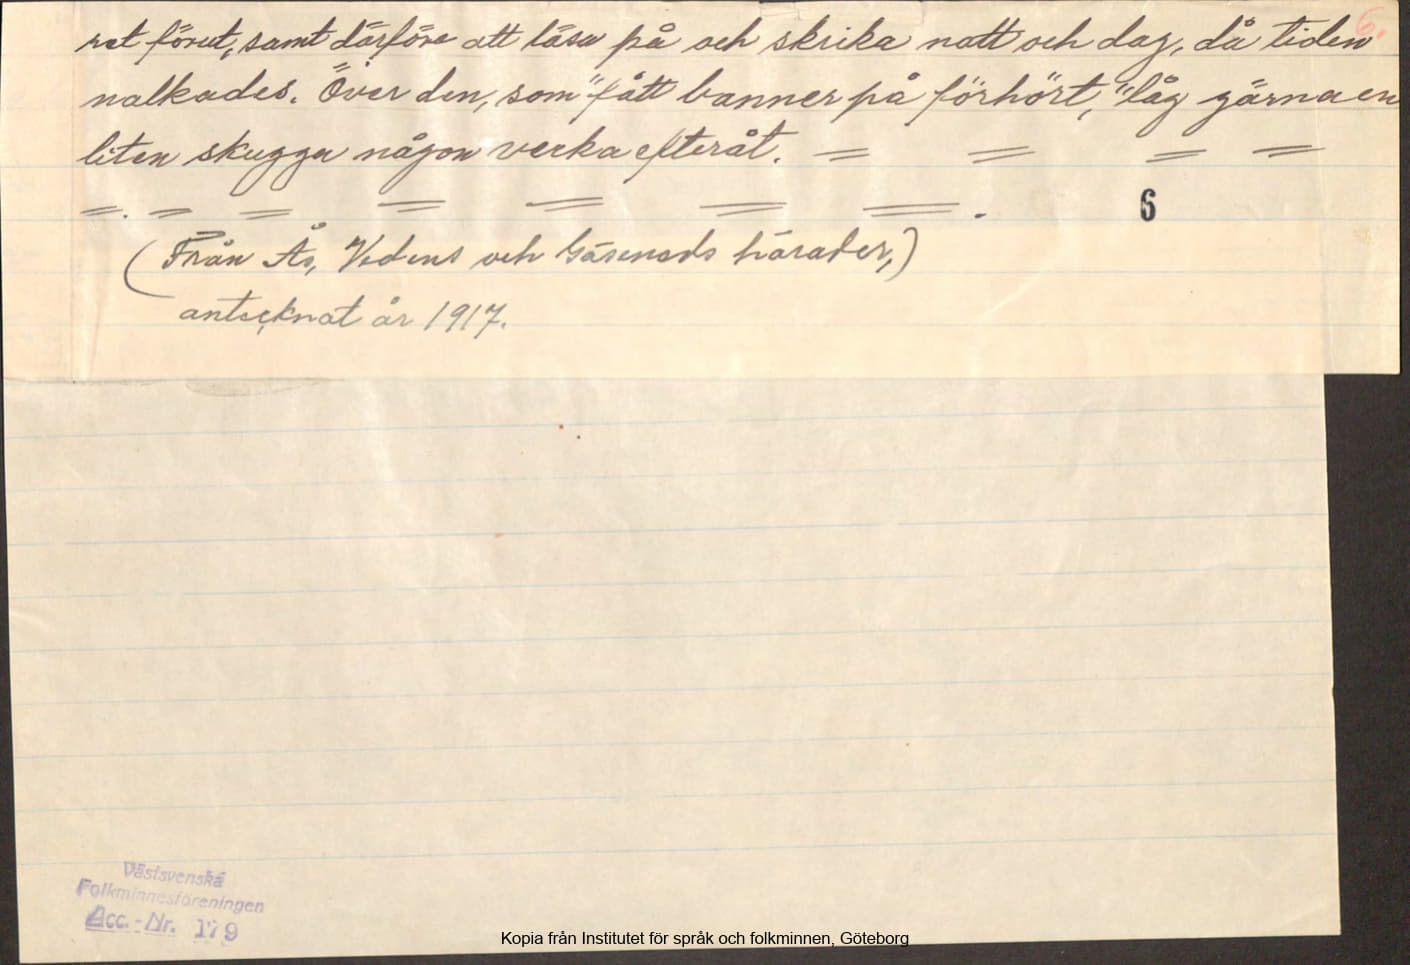 6.
ret förut, samt därföre att läsa på och skrika natt och dag, då tiden
nalkades. Över den, som "fått banner på förhört," låg gärna en
liten skugga någon vecka efteråt. = = = =
=. = = = = = =.
6
(Från Ås, Vedens och Gäseneds härader,)
antecknat år 1917.
Västsvenska
Folkminnesföreningen
Acc.-Nr. 179
Kopia från Institutet för språk och folkminnen, Göteborg